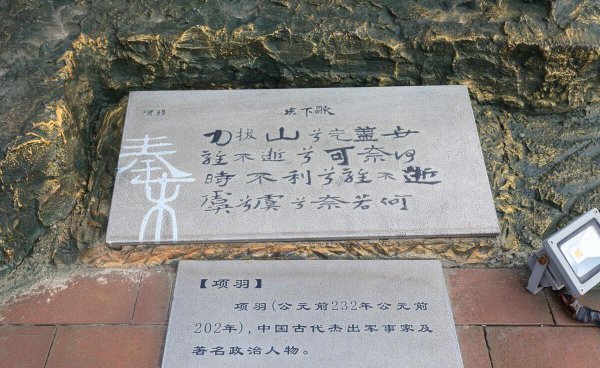 项羽
垓下歌
力拔山兮气蓋世
骓不逝兮可奈何
時不利兮骓不逝
虞兮虞兮奈若何
秦
【项羽】
项羽(公元前232年公元前
202年),中国古代杰出军事家及
著名政治人物。